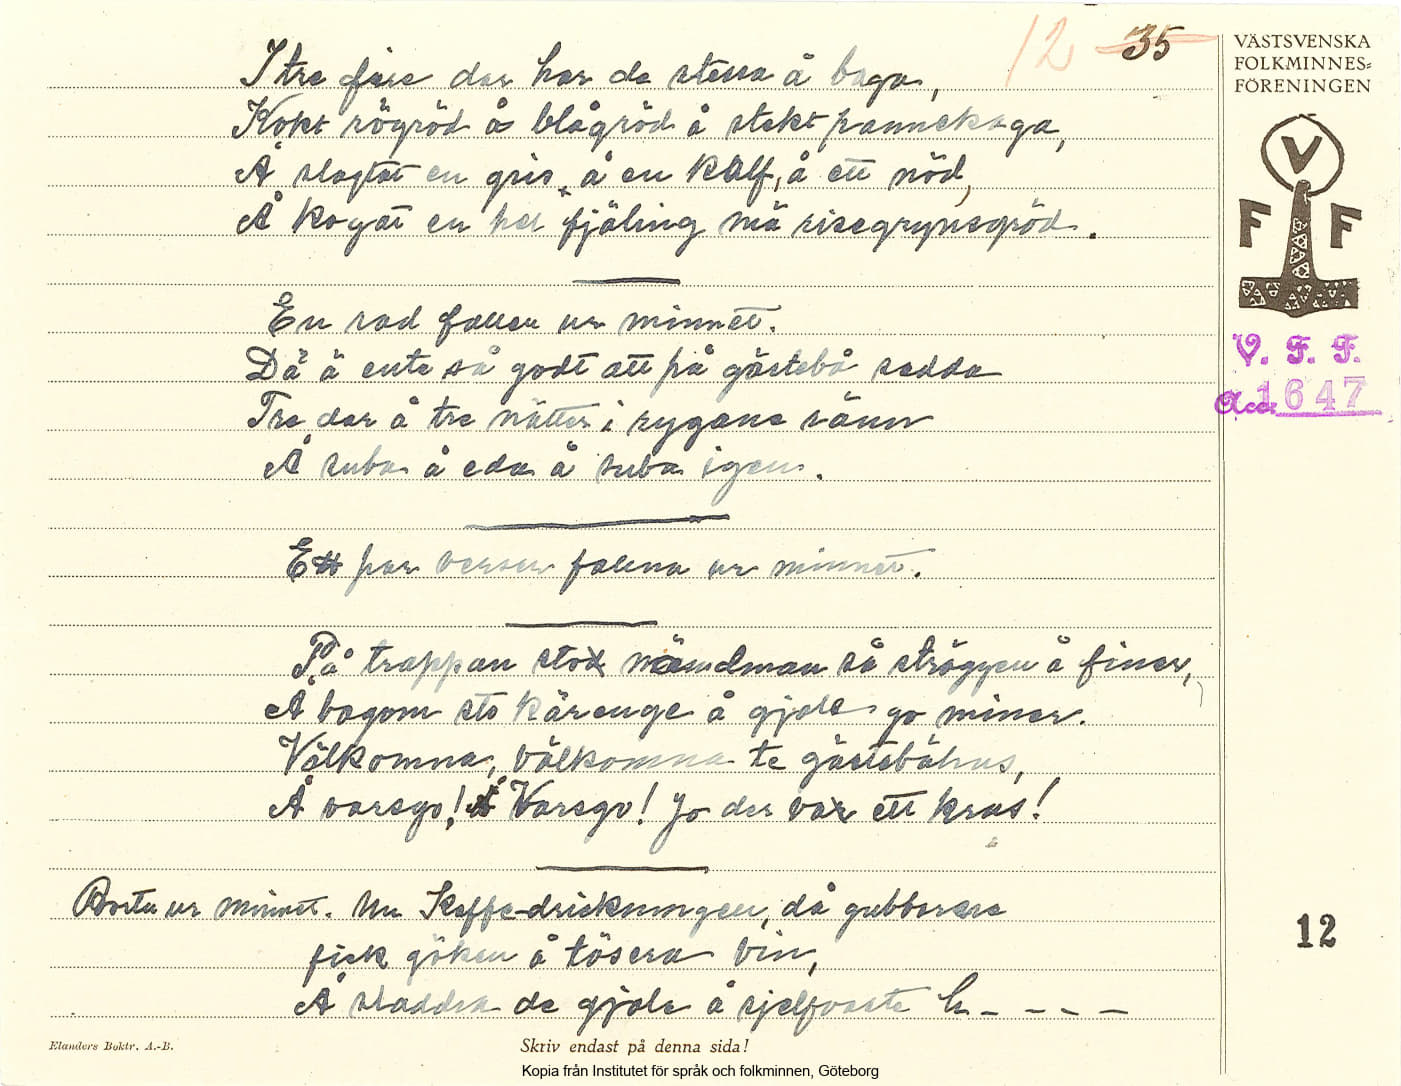 12 35
VÄSTSVENSKA
FOLKMINNES-
FÖRENINGEN
V
F F
V. F. F.
Acc. 1647
I tre dar har de å baga,
Kokt rögröd å blågröd å stekt pannekaga,
Å slagtat en gris, å en kalf, å ett nöd,
Å kogat en hel fjäling mä risegrynsgröd.
En rad fallen ur minnet.
Dä ä ente så godt att på gästebå sedda
Tre dar å tre nätter i rygane
Å suba å eda å suba igen.
Ett par verser fallna ur minnet.
På trappan sto nämdman så ströggen å finer,
Å bagom sto kärenge å gjole go miner.
Välkomna, välkomna te gästebåhus,
Å varsgo! Varsgo! Jo der var ett krus!
Borta ur minnet. Nu Kaffe-drickningen, då gubberera
fick göken å tösera vin,
Å sladdra de gjole å sjelfvaste h - - - -
12
Elanders Boktr. A.-B.
Skriv endast på denna sida!
Kopia från Institutet för språk och folkminnen, Göteborg